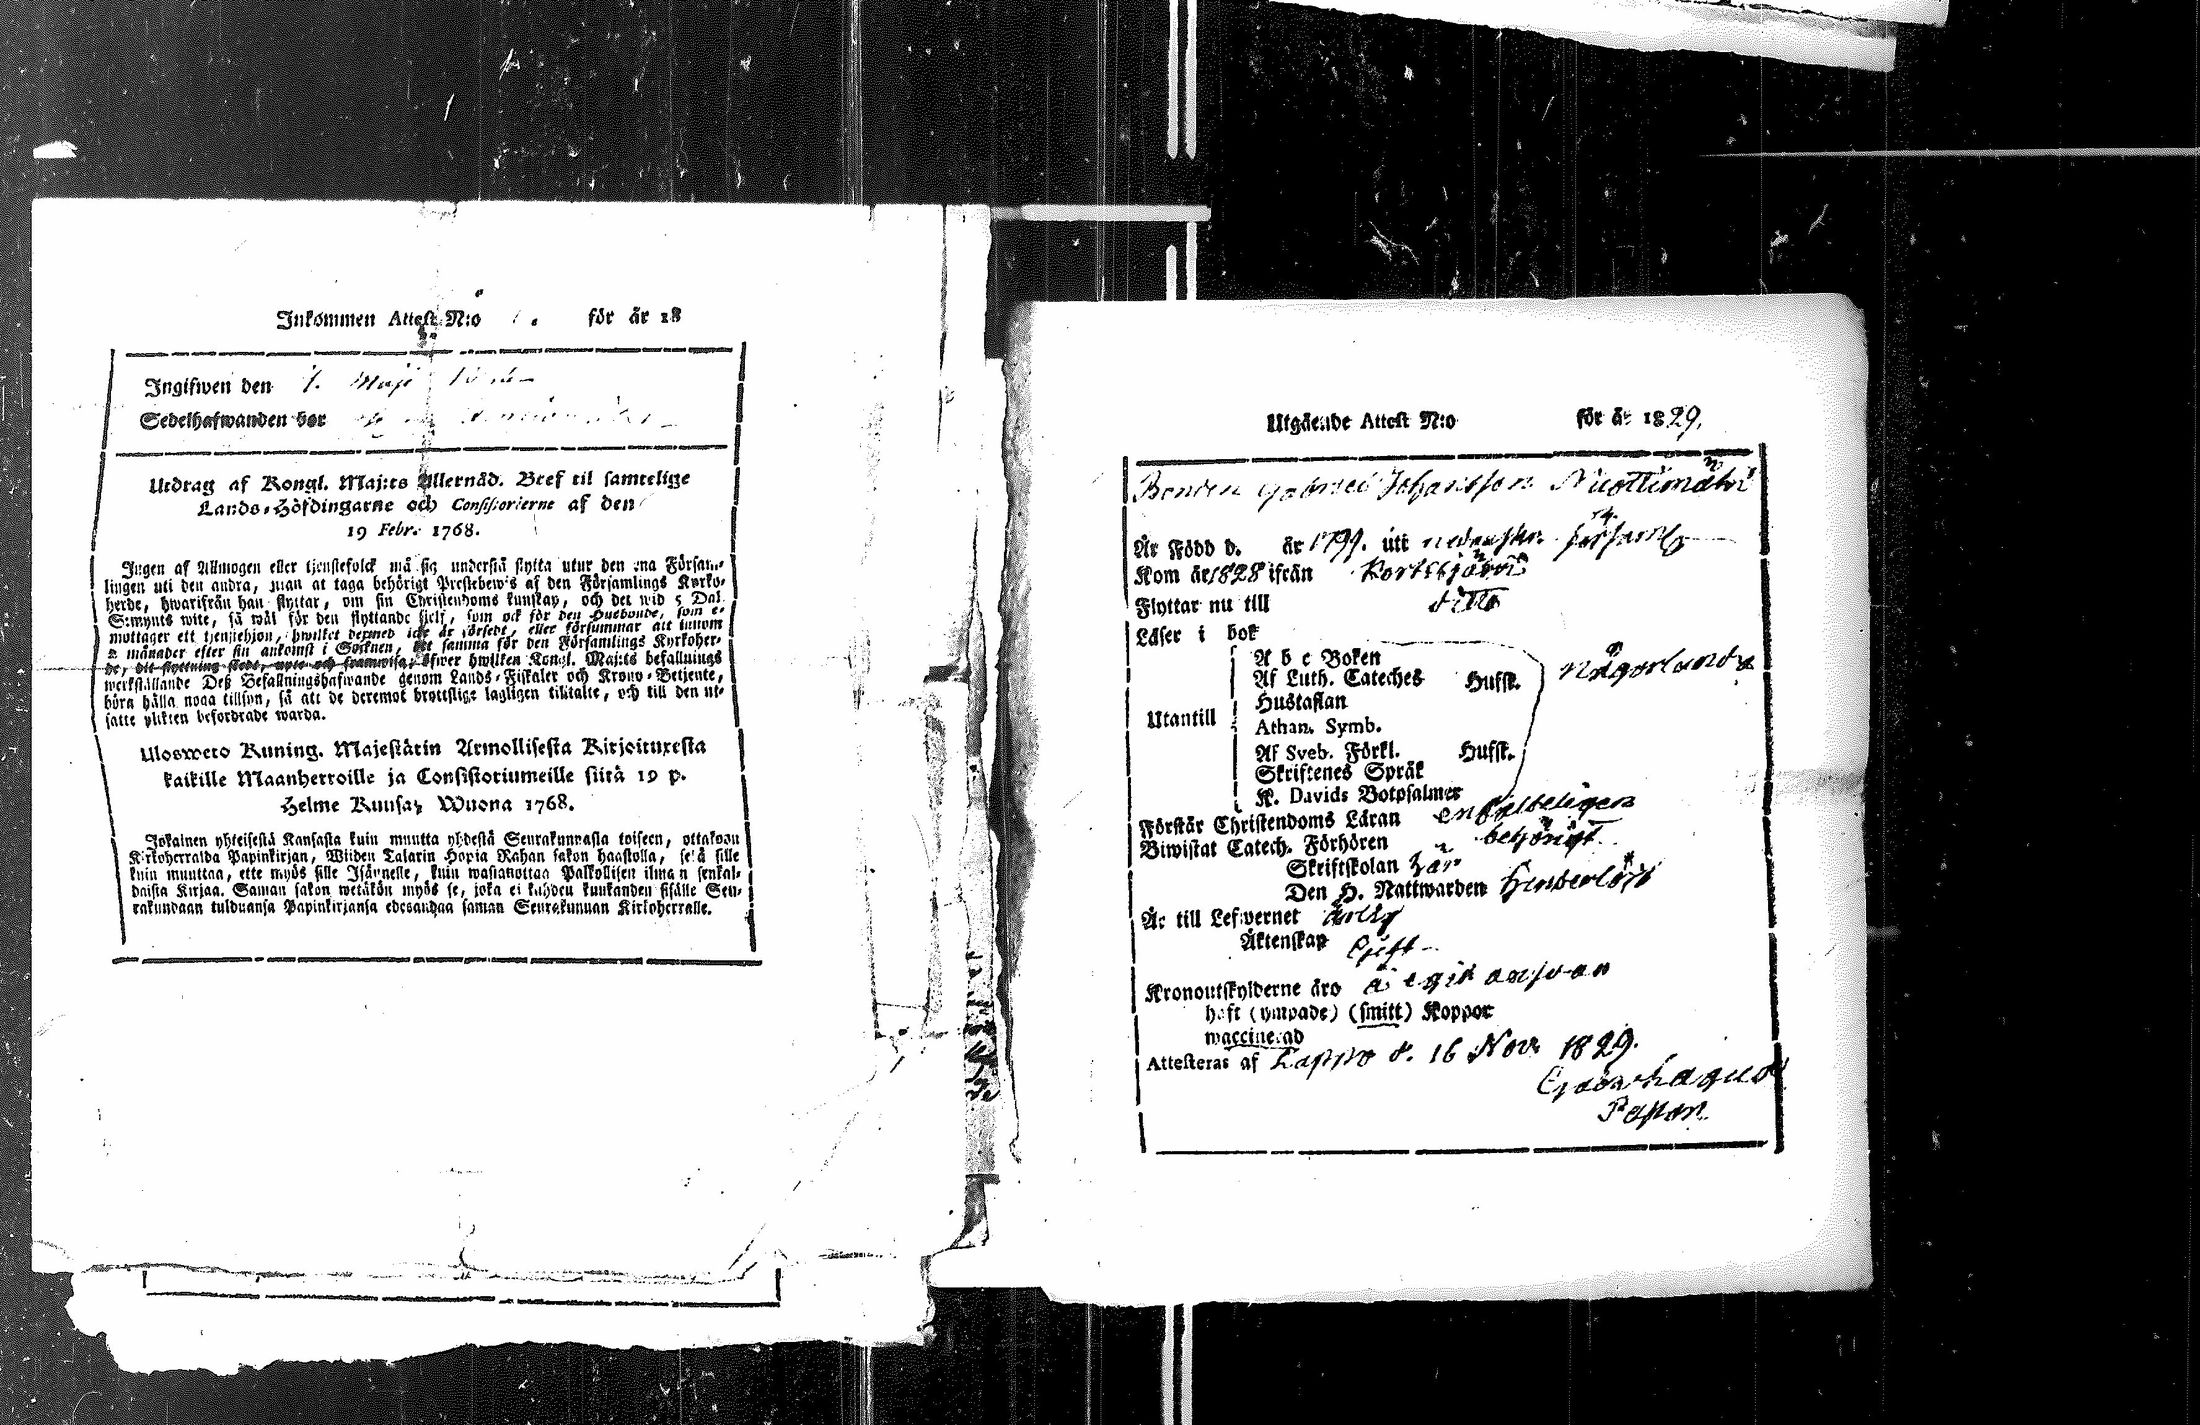 Inkommen Attest N:o för år 18
Ingifwen den 7. Maji
Sedelhafwanden bor
Utdrag af Kongl. Maj:ts Allernåd. Bref til samtelige
Lands-Höfdingarne och Consistorierne af den
19 Febr. 1768.
Ingen af Allmogen eller tjenstefolck må sig understå flytta utur den ena Försam-
lingen uti den andra, utan at taga behörigt Prestebewis af den Församlings Kyrko-
herde, hwarifrån han flyttar, om sin Christendoms kunskap, och det wid 5 Dal.
S:mynts wite, så wäl för den flyttande sjelf, som ock för den Husbonde, som e-
mottager ett tjenstehjon, hwilket dermed icke är försedt, eller försummar att innom
2 månader efter sin ankomst i Socknen, det samma för den Församlings Kyrkoher-
de, dit flyttning skedt, upte och framwisa, öfwer hwilken Kongl. Maj:ts befallnings
werkställande Deß Befallningshafwande genom Lands-Fiskaler och Krono-Betjente,
böra hålla noga tillsyn, så att de deremot brottslige lagligen tilltalte, och till den ut-
satte plikten befordrade warda.
Ulosweto Kuning. Majestätin Armollisesta Kirjoituxesta
kaikille Maanherroille ja Consistoriumeille siitä 19 p.
Helme Kuusa, Wuona 1768.
Jokainen yhteisestä Kansasta kuin muutta yhdestä Seurakunnasta toiseen, ottakoon
Kirkoherralda Papinkirjan, Wiiden Talarin Hopia Rahan sakon haastolla, sekä sille
kuin muuttaa, ette myös sille Isännelle, kuin wastanottaa Palkollisen ilman senkal-
daista Kirjaa. Saman sakon wetäkön myös se, joka ei kahden kuukanden sisälle Seu-
rakundaan tulduansa Papinkirjansa edesandaa saman Seurakunnan Kirkoherralle.
Utgående Attest N:o för år 1829.
Bonden Gabriel Johansson Nicottimäki
Är Född d. år 1799. uti nedanskr. församl
Kom år 1828 ifrån Kortesjärvi
Flyttar nu till ditto
Läser i bok
A b c Boken
Af Luth. Cateches Hufst. någorlunda
Hustaflan
Utantill Athan. Symb.
Af Sveb. Förkl. Hufst.
Skriftenes Språk
K. Davids Botpsalmer
Förstår Christendoms Läran enfaldeligen
Biwistat Catech. Förhören behörigt
Skriftskolan här
Den H. Nattwarden hinderlöst
Är till Lefwernet ärlig
Äktenskap Gift
Kronoutskylderne äro
haft (ympade) (smitt) Koppor
waccinerad
Attesteras af Lappo d. 16 Nov. 1829.
Pastor